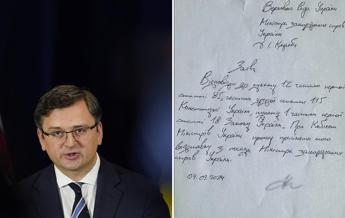 Верховна Рада України
Міністра закордонних справ
України
Д. І. Кулеби
Заява
Відповідно до пункту 12 частини першої
статті 85, частини другої статті 115
Конституції України, пункту 1 частини першої
статті 18 Закону України "Про Кабінет
Міністрів України" прошу прийняти мою
відставку з посади Міністра закордонних
справ України.
04.09.2024